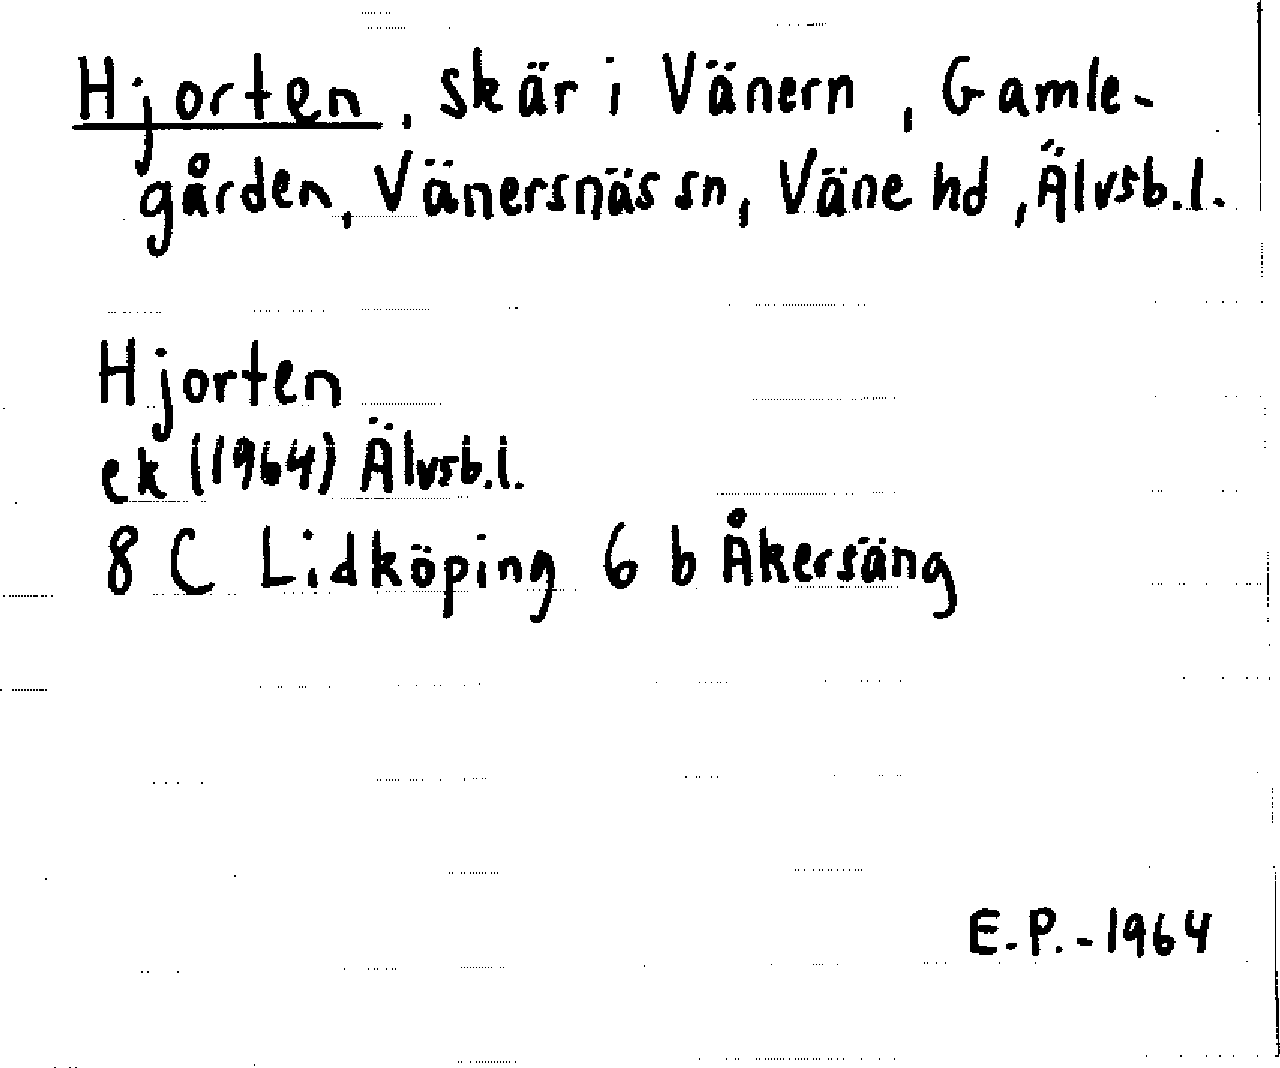 Hjorten, skär i Vänern, Gamle-
gården, Vänersnäs sn, Väne hd, Älvsb.l.
Hjorten
ek (1964) Älvsb.l.
8 C Lidköping 6 b Åkersäng
E.P.-1964